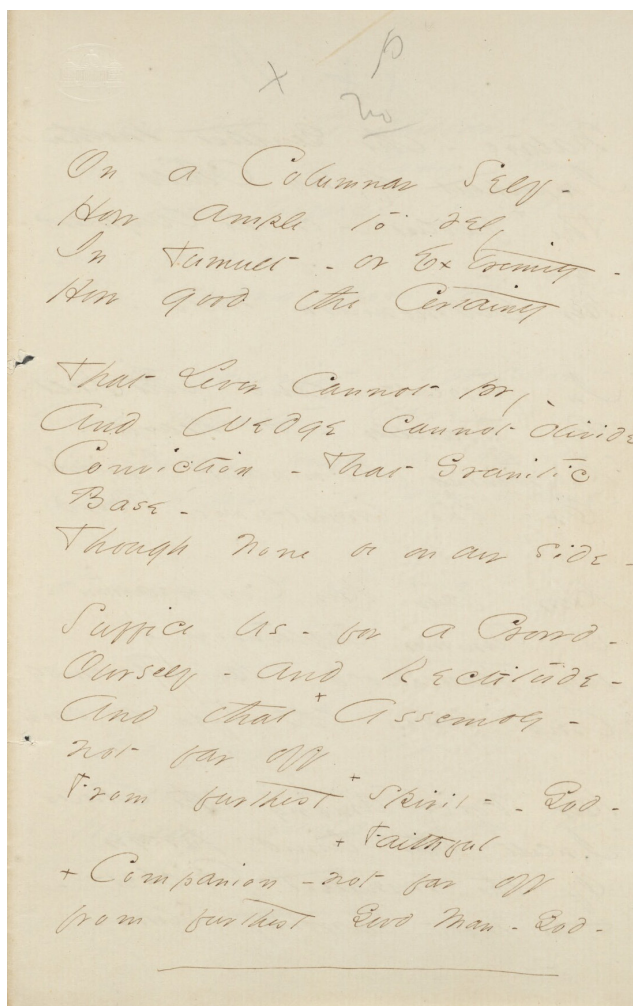 x
no
On a Columnar Self -
How ample to rely
In Tumult - or Extremity -
How good the Certainty
That Lever cannot pry -
And Wedge cannot divide
Conviction - That Granitic
Base -
Though none be on our side -
Suffice Us - for a Crowd -
Ourself - and Rectitude -
And that + Assembly -
not far off
From furthest + Spirit - God -
+ Faithful
+ Companion - not far off
from furthest Good Man - God -